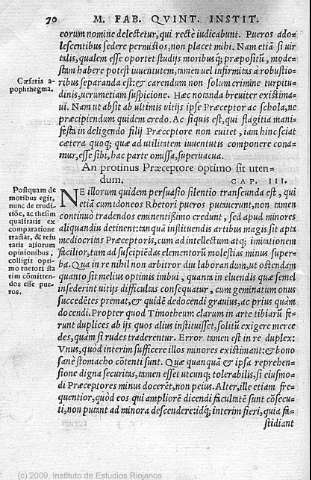 70 M. FAB. QVINT. INSTIT.
eorum nomine delectetur, qui rectè iudicabunt. Pueros ado-
lescentibus sedere permistos, non placet mihi. Nam etiā si uir
talis, qualem esse oportet studijs moribusq; præpositū, mode-
stam habere potest iuuentutem, tamen uel infirmitas à robustio-
ribus separanda est: & carendum non solum crimine turpitu-
dinis, uerumetiam suspicione. Hæc notanda breuiter existima-
ui. Nam ut absit ab ultimis uitijs ipse Præceptor ac schola, ne
præcipiendum quidem credo. Ac siquis est, qui flagitia mani-
festa in deligendo filij Præceptore non uitet, iam hinc sciat
cætera quoq; quæ ad utilitatem iuuentutis componere cona-
mur, esse sibi, hac parte omissa, superuacua.
Cæsaris a-
pophthegma.
An protinus Præceptore optimo sit uten-
dum. CAP. III.
Postquam de
moribus egit,
nunc de eruditi-
one, ac thesim
qualitatis ex
comparatione
tradit, & refu-
tatis aliorum
opinionibus,
colligit opti-
mo rectori sta-
tim cōmitten-
dos esse pue-
ros.
NE illorum quidem persuasio silentio transeunda est, qui
etiā cum idoneos Rhetori pueros putauerunt, non tamen
continuò tradendos eminentissimo credunt, sed apud minores
aliquandiu detinent: tanquā instituendis artibus magis sit apta
mediocritas Præceptoris, cum ad intellectum atq; imitationem
facilior, tam ad suscipiēdas elementorū molestias minus super-
ba. Qua in re nihil non arbitror diu laborandum, ut ostendam
quanto sit melius optimis imbui, quanta in eluendis quæ semel
insederint uitijs difficultas consequatur, cum geminatum onus
succedētes premat, & quidē dedocendi grauius, ac prius quàm
docendi. Propter quod Timotheum clarum in arte tibiarū fe-
runt duplices ab ijs quos alius instituisset, solitū exigere merce
des, quàm si rudes traderentur. Error tamen est in re duplex:
Vnus, quòd interim sufficere illos minores existimant: & bono
sanè stomacho cōtenti sunt. Quæ quanquā & ipsa reprehensi-
one digna securitas, tamen esset utcunq; tolerabilis, si eiusmo-
di Præceptores minus docerēt, non peius. Alter, ille etiam fre-
quentior, quòd eos qui ampliorē dicendi facultatē sunt cōsecu-
ti, non putant ad minora descendere: idq; interim fieri, quia fa-
stidiant
(c) 2009, Instituto de Estudios Riojanos